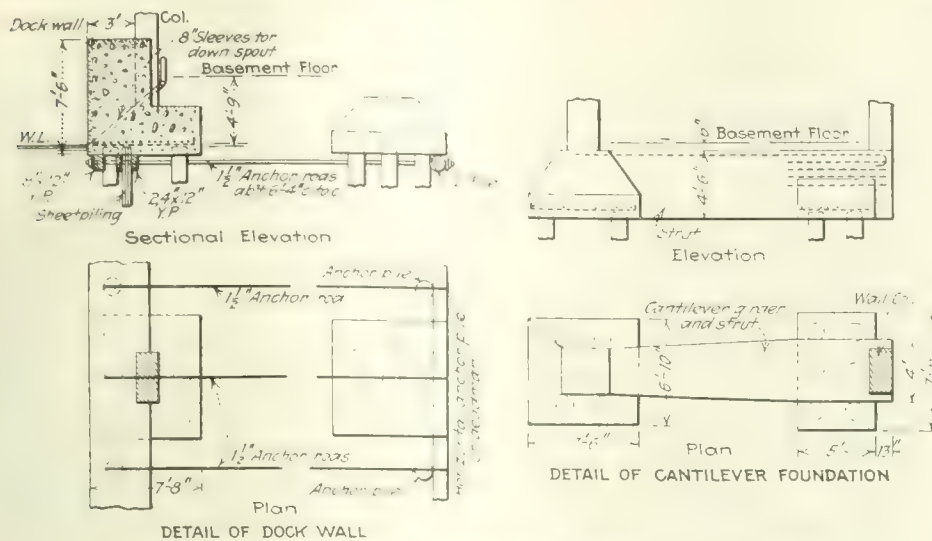 Dock wall
3'
Col.
8" Sleeves for
down spout
Basement Floor
7'-6"
4'-9"
W.L.
1½" Anchor rods
abt 6'-4" c to c
Sheetpiling
2, 4"x12"
Y.P.
Sectional Elevation
Anchor pile
1½" Anchor rod
1½" Anchor rods
7'-8"
Anchor pile
Plan
DETAIL OF DOCK WALL
Basement Floor
4'-6"
Strut
Elevation
Cantilever girder
and strut
Wall Col.
6'-10"
4'
7'-6"
Plan
5'
13"
DETAIL OF CANTILEVER FOUNDATION